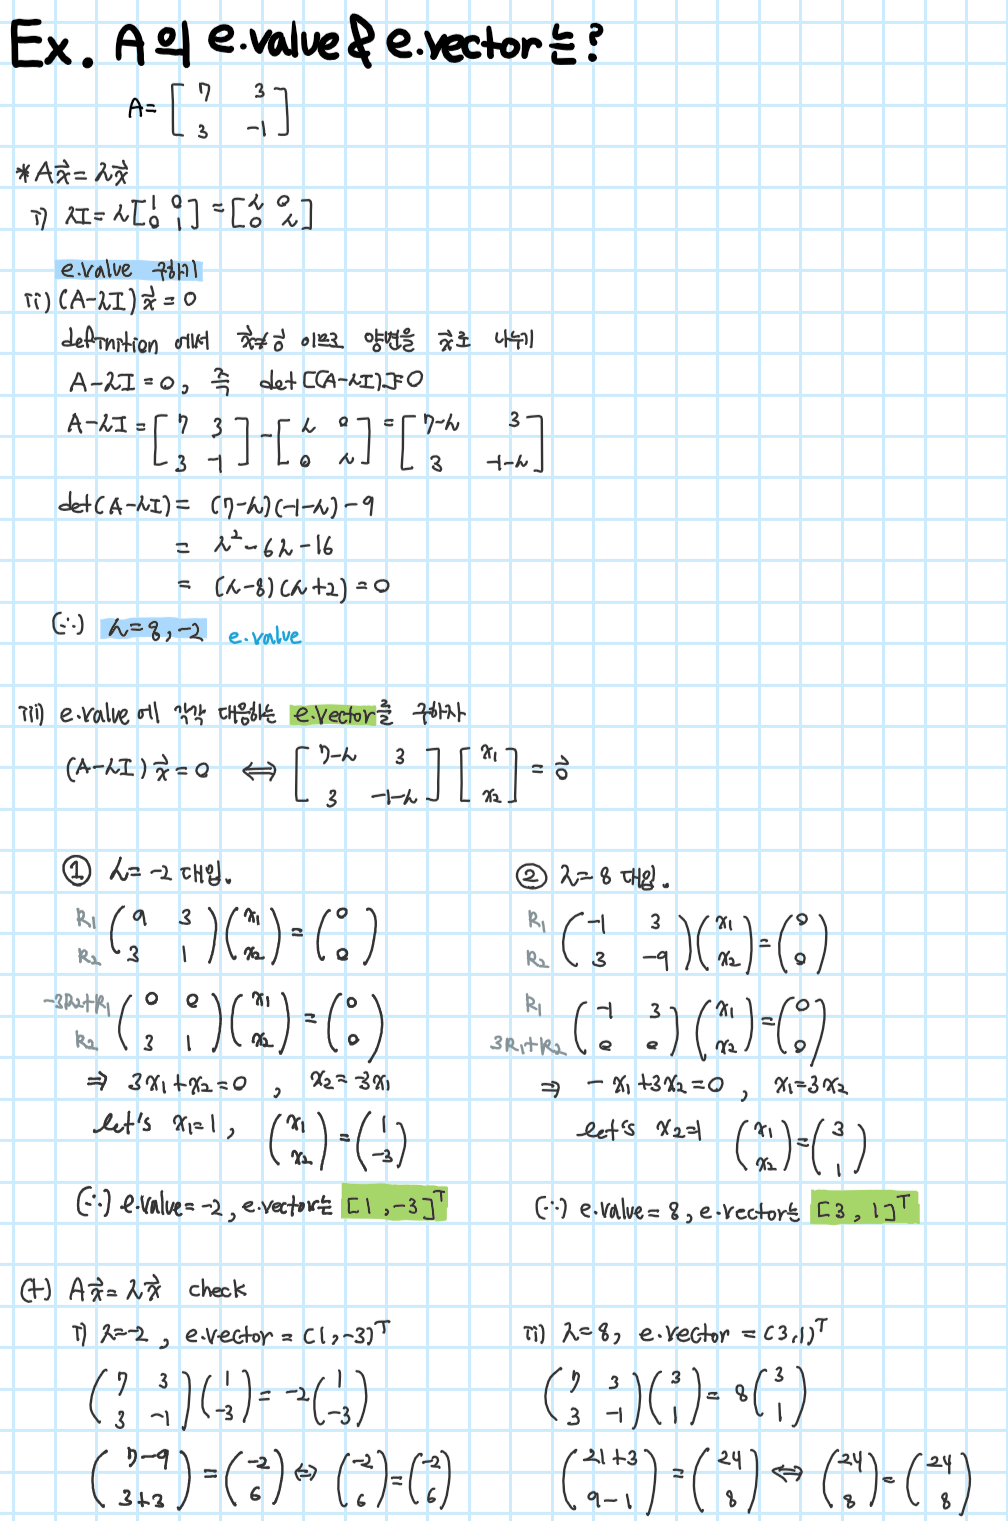 Ex. A의 e.value & e.vector는?
A = [ 7 3
3 -1 ]
* Ax⃗ = λx⃗
i) λI = λ[1 0 0 1] = [λ 0 0 λ]
e.value 구하기
ii) (A-λI)x⃗ = 0
definition 에서 x⃗≠0⃗ 이므로 양변을 x⃗로 나누기
A-λI = 0, 즉 det[(A-λI)]=0
A-λI = [7 3 3 -1] - [λ 0 0 λ] = [7-λ 3 3 -1-λ]
det(A-λI) = (7-λ)(-1-λ)-9
= λ²-6λ-16
= (λ-8)(λ+2) = 0
(∴) λ=8, -2 e.value
iii) e.value 에 각각 대응하는 e.vector를 구하자
(A-λI)x⃗ = 0 ⟺ [7-λ 3 3 -1-λ] [x₁ x₂] = 0⃗
① λ= -2 대입.
R₁ R₂ (9 3 3 1)(x₁ x₂) = (0 0)
-3R₂+R₁ R₂ (0 0 3 1)(x₁ x₂) = (0 0)
⇒ 3x₁+x₂=0, x₂=-3x₁
let's x₁=1, (x₁ x₂) = (1 -3)
(∴) e.value=-2, e.vector는 [1, -3]ᵀ
② λ= 8 대입.
R₁ R₂ (-1 3 3 -9)(x₁ x₂) = (0 0)
R₁ 3R₁+R₂ (-1 3 0 0)(x₁ x₂) = (0 0)
⇒ -x₁+3x₂=0, x₁=3x₂
let's x₂=1 (x₁ x₂) = (3 1)
(∴) e.value= 8, e.vector는 [3, 1]ᵀ
(+) Ax⃗ = λx⃗ check
i) λ=-2, e.vector = (1, -3)ᵀ
(7 3 3 -1)(1 -3) = -2(1 -3)
(7-9 3+3) = (-2 6) ⟺ (-2 6) = (-2 6)
ii) λ=8, e.vector = (3,1)ᵀ
(7 3 3 -1)(3 1) = 8(3 1)
(21+3 9-1) = (24 8) ⟺ (24 8) = (24 8)